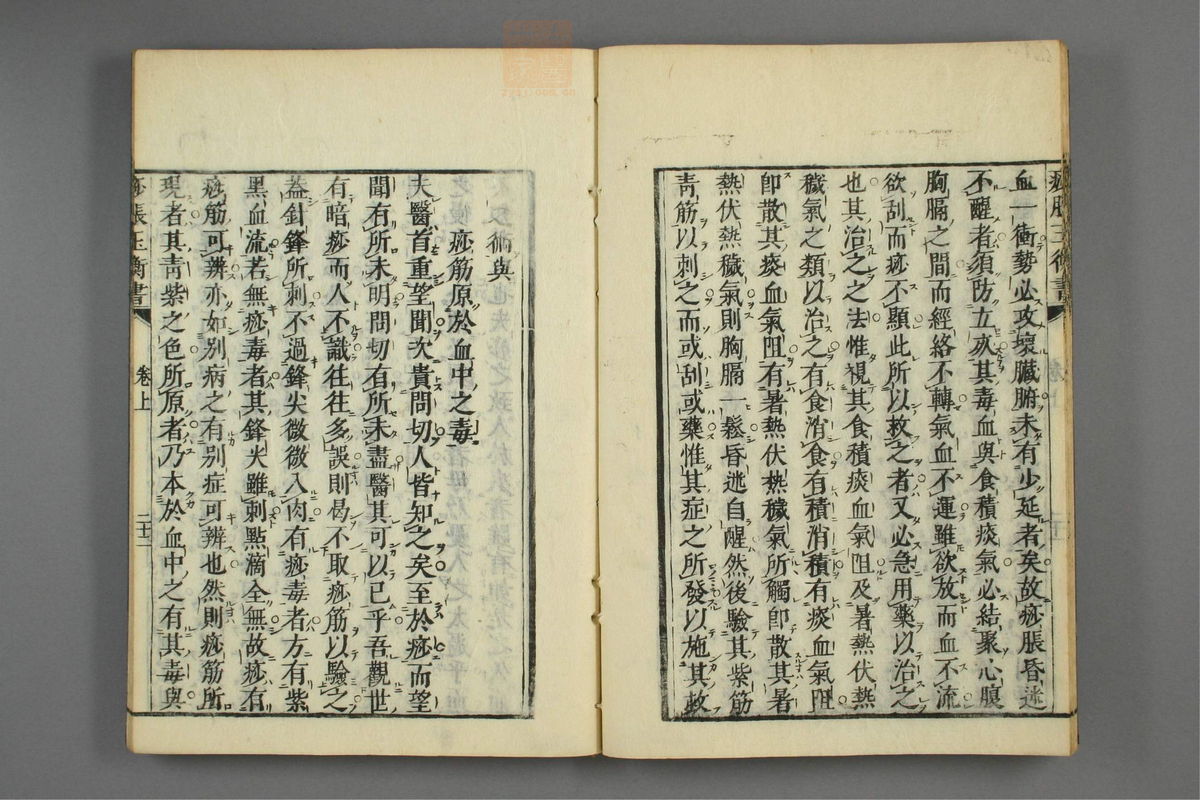 痧脹玉衡書
血一衝勢必攻壞臟腑未有少延者矣故痧脹昏迷
不醒者須防立㱥其毒血與食積痰氣必結聚心腹
胸膈之間而經絡不轉氣血不運雖欲放而血不流
欲刮而痧不顯此所以救之者又必急用藥以治之
也其治之之法惟視其食積痰血氣阻及暑熱伏熱
穢氣之類以治之有食消食有積消積有痰血氣阻
卽散其痰血氣阻有暑熱伏熱穢氣所觸卽散其暑
熱伏熱穢氣則胸膈一鬆昏迷自醒然後驗其紫筋
青筋以刺之而或刮或藥惟其症之所發以施其救
術與
痧筋原於血中之毒
夫醫首重望聞次貴問切人皆知之矣至於痧而望
聞有所未明問切有所未盡醫其可以已乎吾觀世
有暗痧而人不識往往多誤則曷不取痧筋以驗之
蓋針鋒所刺不過鋒尖微微入肉有痧毒者方有紫
黑血流若無痧毒者其鋒尖雖刺點滴全無故痧有
痧筋可辨亦如别病之有别症可辨也然則痧筋所
現者其青紫之色所原者乃本於血中之有其毒與
痧脹玉衡書 卷上 二十二